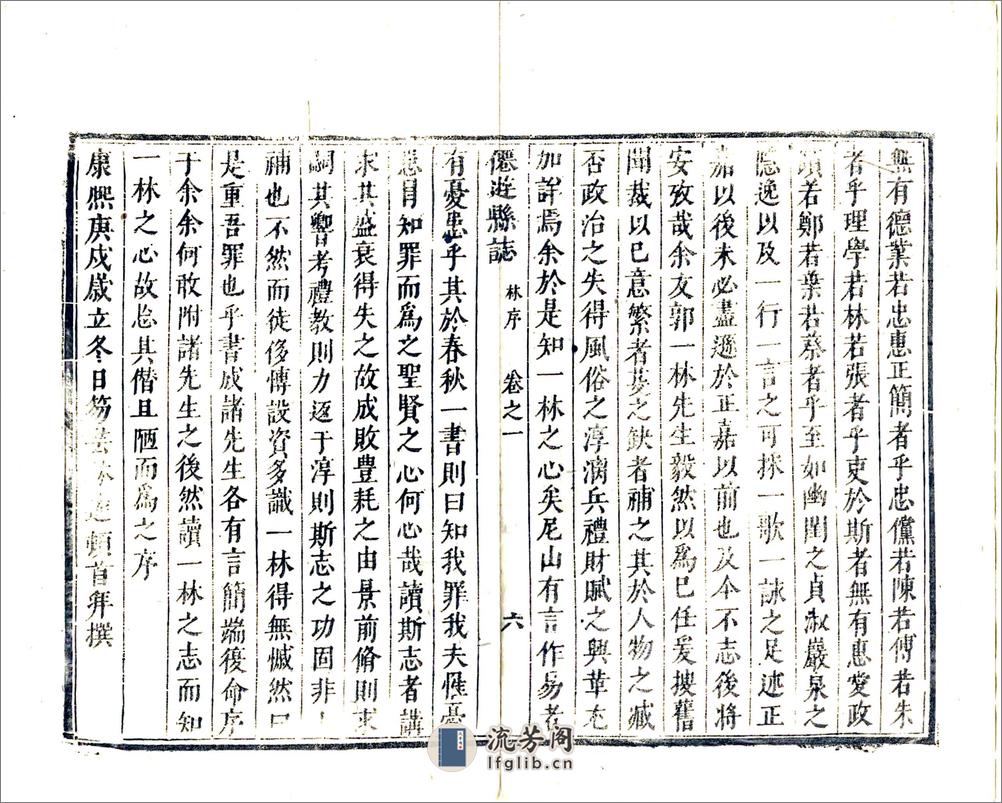 無有德業若忠惠正簡者乎忠儻若陳若傅若朱
者乎理學若林若張者乎吏於斯者無有惠愛政
績若鄭若葉若蔡者乎至如幽閨之貞淑巖泉之
隱逸以及一行一言之可採一歌一詠之足述正
嘉以後未必盡遜於正嘉以前也及今不志後將
安攷哉余友郭一林先生毅然以爲已任爰搜舊
聞裁以已意繁者芟之缺者補之其於人物之臧
否政治之失得風俗之淳漓兵禮財賦之興革尤
加詳焉余於是知一林之心矣尼山有言作易者
僊遊縣誌 林序 卷之一 六
有憂患乎其於春秋一書則曰知我罪我夫惟憂
患自知罪而爲之聖賢之心何心哉讀斯志者講
求其盛衰得失之故成敗豊耗之由景前脩則求
嗣其響考禮教則力返于淳則斯志之功固非
補也不然而徒侈博設資多識一林得無憾然曰
是重吾罪也乎書成諸先生各有言簡端復命序
于余余何敢附諸先生之後然讀一林之志而知
一林之心故忘其僭且陋而爲之序
康熙庚戌歲立冬日 頓首拜撰
流芳阁
lfglib.cn